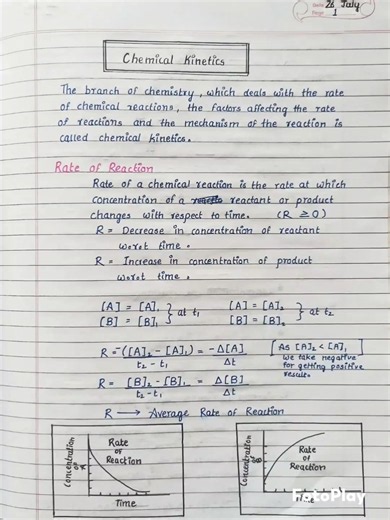 Date 26 July
Page 1
Chemical Kinetics
The branch of chemistry, which deals with the rate
of chemical reactions, the factors affecting the rate
of reactions and the mechanism of the reaction is
called chemical kinetics.
Rate of Reaction
Rate of a chemical reaction is the rate at which
concentration of a reactant or product
changes with respect to time. (R ≥ 0)
R = Decrease in concentration of reactant
w.r.t time.
R = Increase in concentration of product
w.r.t time.
[A] = [A]₁ } at t₁ [A] = [A]₂ } at t₂
[B] = [B]₁ [B] = [B]₂
R = -([A]₂ - [A]₁) / t₂ - t₁ = -Δ[A] / Δt [As [A]₂ < [A]₁
we take negative
for getting positive
result.]
R = [B]₂ - [B]₁ / t₂ - t₁ = Δ[B] / Δt
R → Average Rate of Reaction
Concentration
Rate
of
Reaction
Time
Concentration
Rate
of
Reaction
Time
FotoPlay